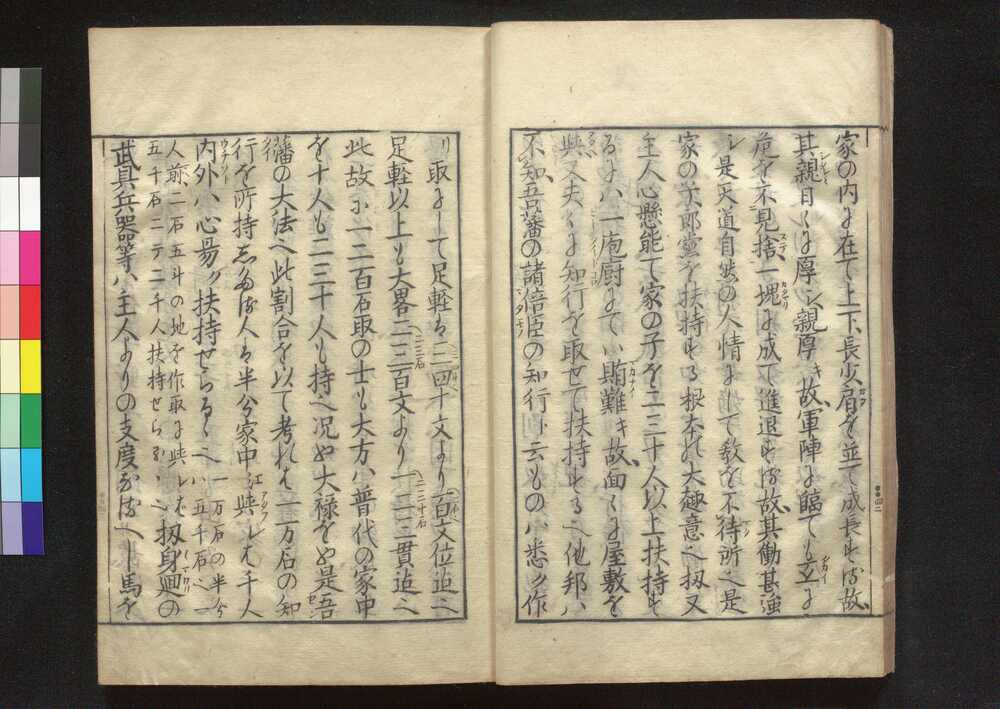 家の内に在て上下、長少、肩を並て成長する故、
其親目くに厚し親厚き故、軍陣に臨ても互に
危を不見捨一塊に成て進退する故、其働甚強
し是天道自然の人情にして教を不待所也是
家の子郎党を扶持する根本の大趣意也扨又
主人心懸能て家の子を二三十人以上扶持す
るには一庖厨にてハ賄難き故、面々に屋敷を
與又夫々に知行を取せて扶持する也他邦ハ
不知、吾藩の諸倍臣の知行ト云ものハ悉ク作
リ取にして足軽は二三四十文より百文位迄也
足軽以上も大畧二三百文より一二三貫迄也
此故に一二百石取の士も大方ハ普代の家中
を十人も二三十人も持也況や大禄をや是吾
藩の大法也此割合を以て考れは一万石の知
行を所持する人は半分家中江與レは千人
内外ハ心易ク扶持せらるゝ也 一万石の半分ハ五千石也一
人前二石五斗の地を作取に與レは五千石ニテ二千人扶持せらるゝ也 扨身廻の
武具兵器等ハ主人よりの支度なるへし馬を